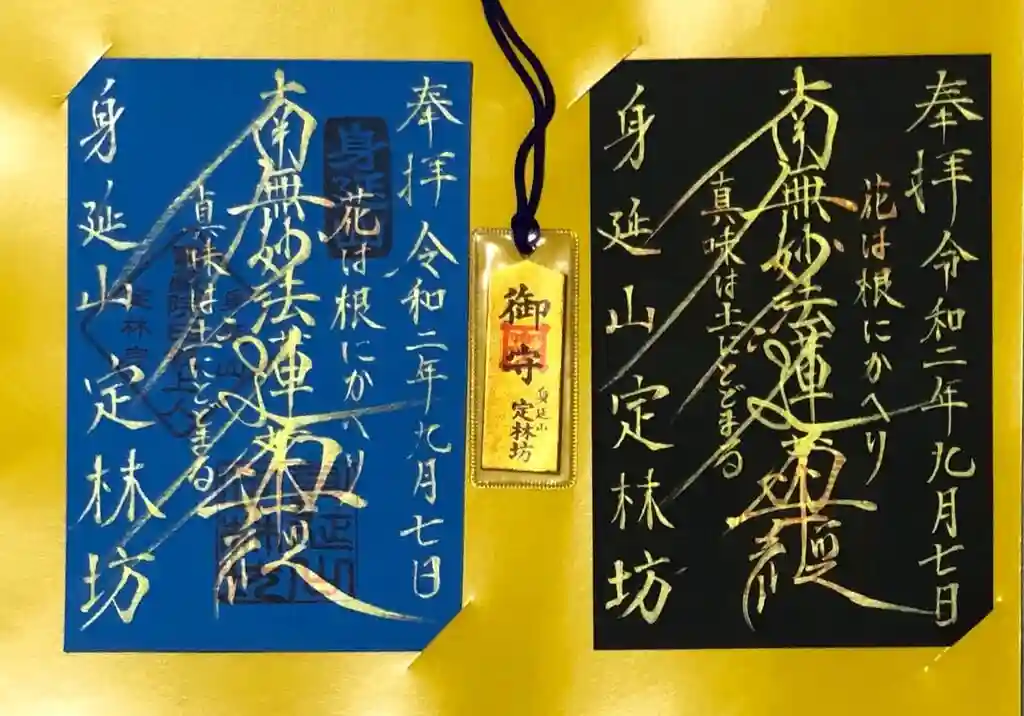 奉拝 令和二年九月七日
花は根にかへり
南無妙法蓮華経
真味は土にとどまる
身延山 定林坊
御守
身延山
定林坊
奉拝 令和二年九月七日
花は根にかへり
南無妙法蓮華経
真味は土にとどまる
身延山 定林坊